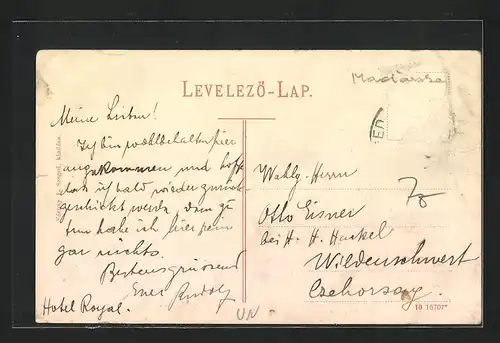 LEVELEZŐ-LAP.
Maďarska
Meine Lieben!
Ich bin wohlbehalten hier
angekommen und hoffe
das ich bald wieder zurück
geschickt werde denn zu
tun habe ich hier rein
gar nichts.
Bestensgrüssend
Euer Rudolf
Hotel Royal.
Wohlg. Herrn
Otto Eisner
bei H. H. Hackel
Wildenschwert
UN
10 16707*